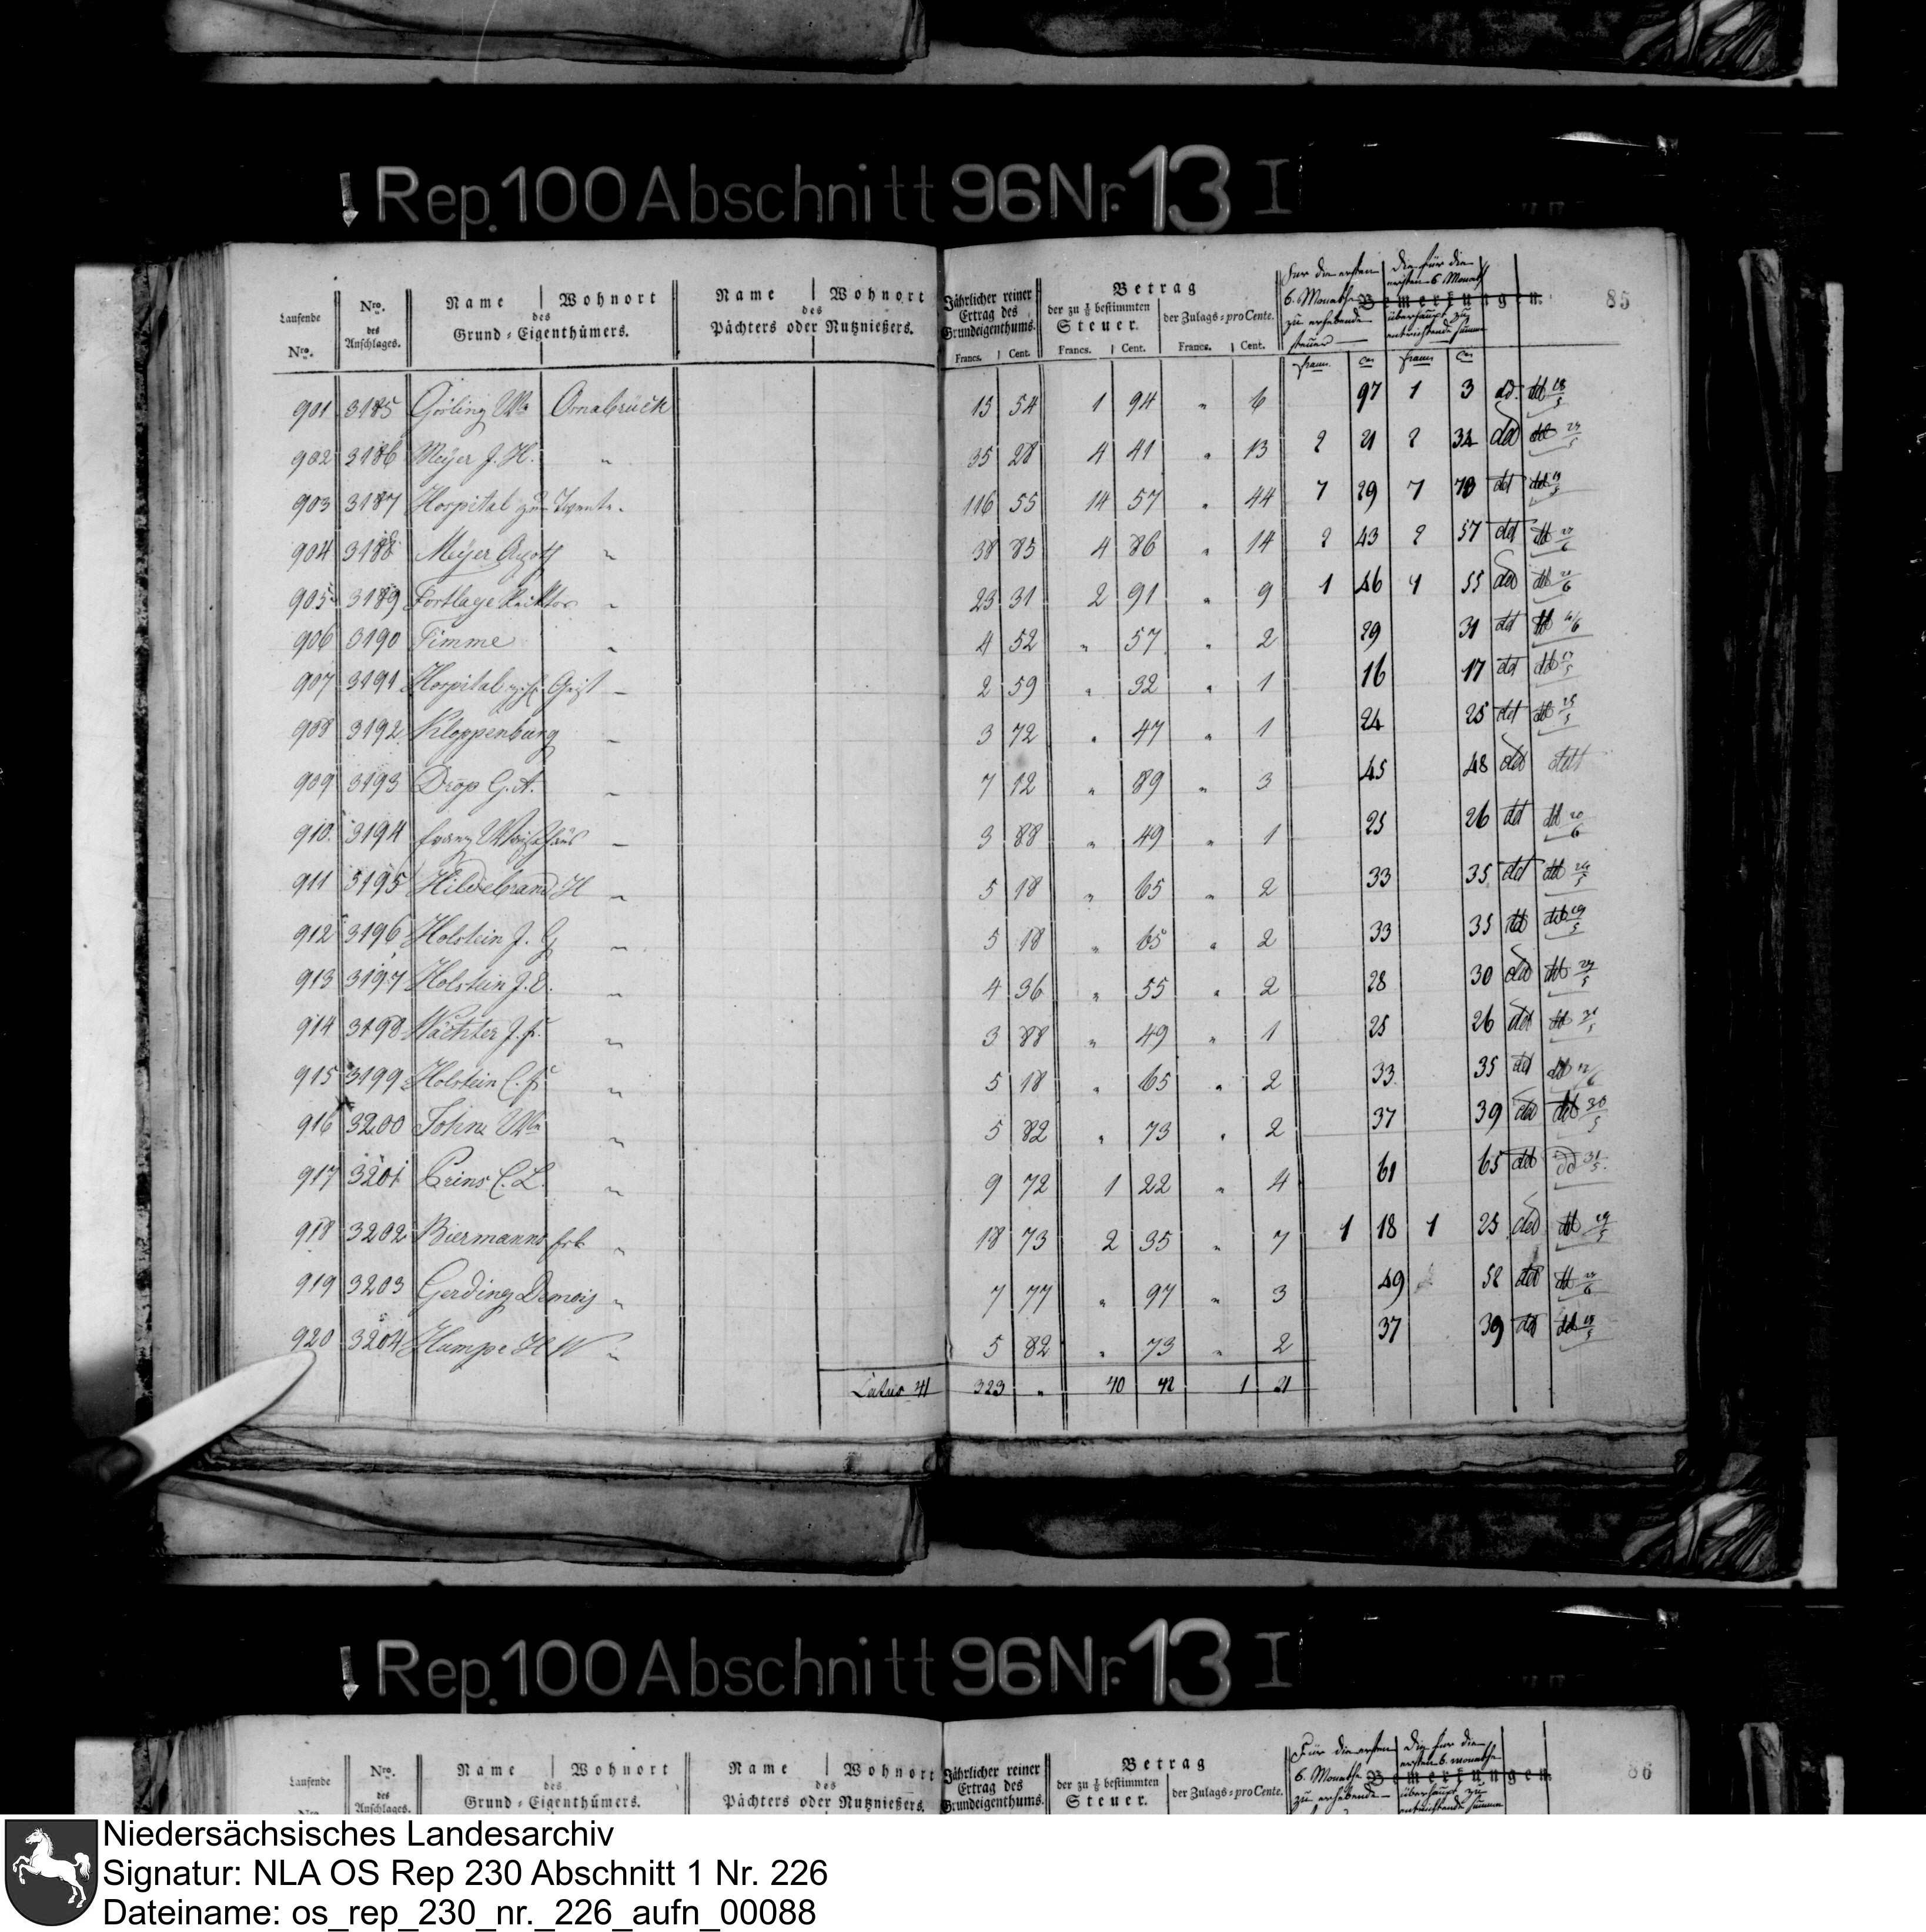 Rep. 100 Abschnitt 96 Nr. 13 I
85
Laufende Nro.
Nro. des Anschlages.
Name Wohnort des Grund-Eigenthümers.
Name Wohnort des Pächters oder Nutznießers.
Jährlicher reiner Ertrag des Grundeigenthums.
Francs. Cent.
Betrag
der zu 1/8 bestimmten Steuer.
Francs. Cent.
der Zulags-proCente.
Francs. Cent.
Für die ersten 6. Monathe zu erhebende Steuer
Die für die ersten 6 Monath überhaupt zu entrichtende Summe
Bemerkungen.
901 3185 Görling Wb Osnabrück 15 54 1 94 " 6 97 1 3
902 3186 Meyer J. H. " 35 28 4 41 " 13 2 21 2 34
903 3187 Hospital zur Twente " 116 55 14 57 " 44 7 29 7 73
904 3188 Meyer " 38 85 4 86 " 14 2 43 2 57
905 3189 Fortlage Recktor " 23 31 2 91 " 9 1 46 1 55
906 3190 Timme " 4 52 " 57 " 2 29 31
907 3191 Hospital Geist " 2 59 " 32 " 1 16 17
908 3192 Kloppenburg " 3 72 " 47 " 1 24 25
909 3193 Drop G. A. " 7 12 " 89 " 3 45 48
910 3194 evang Waisenhaus " 3 88 " 49 " 1 25 26
911 3195 Hildebrand H " 5 18 " 65 " 2 33 35
912 3196 Holstein J. G " 5 18 " 65 " 2 33 35
913 3197 Holstein J. E. " 4 36 " 55 " 2 28 30
914 3198 Wächter J. F. " 3 88 " 49 " 1 25 26
915 3199 Holstein C. F. " 5 18 " 65 " 2 33 35
916 3200 " 5 82 " 73 " 2 37 39
917 3201 Prins C. L. " 9 72 1 22 " 4 61 65
918 3202 Biermanns " 18 73 2 35 " 7 1 18 1 25
919 3203 Gerding Demois " 7 77 " 97 " 3 49 52
920 3204 Hampe H W " 5 82 " 73 " 2 37 39
Latus 41 323 " 40 42 1 21
Rep. 100 Abschnitt 96 Nr. 13 I
86
Laufende
Nro. des Anschlages.
Name Wohnort des Grund-Eigenthümers.
Name Wohnort des Pächters oder Nutznießers.
Jährlicher reiner Ertrag des Grundeigenthums.
Betrag
der zu 1/8 bestimmten Steuer.
der Zulags-proCente.
Für die ersten 6. Monathe zu erhebende
Die für die ersten 6. Monathe überhaupt zu entrichtende Summe
Bemerkungen.
Niedersächsisches Landesarchiv
Signatur: NLA OS Rep 230 Abschnitt 1 Nr. 226
Dateiname: os_rep_230_nr._226_aufn_00088